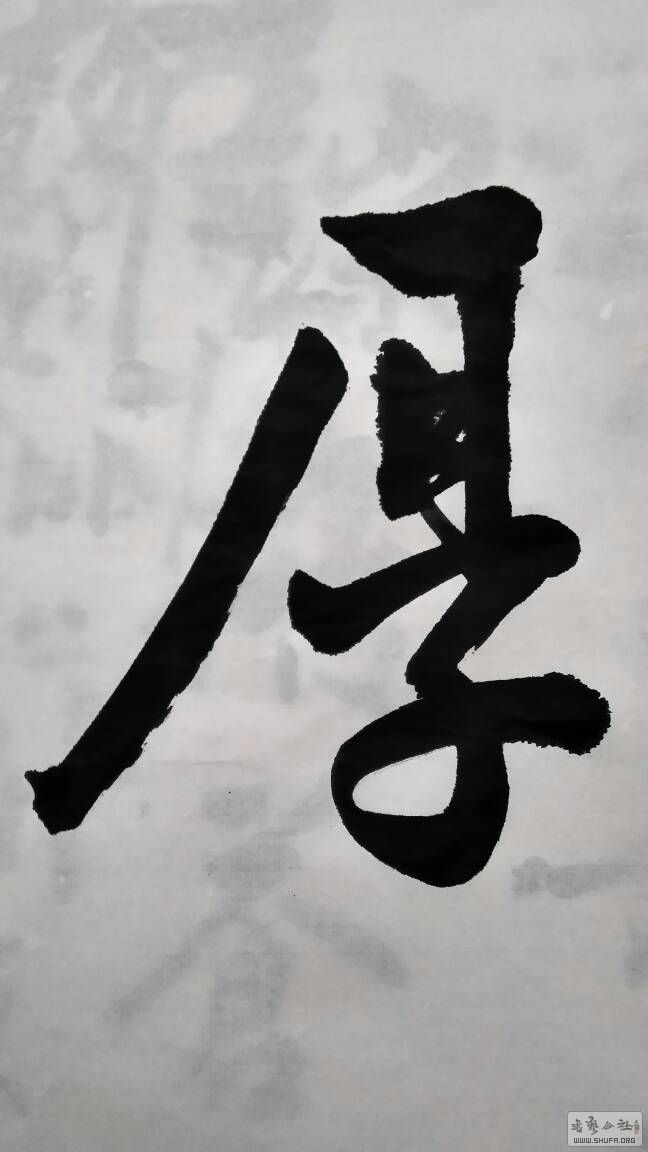 厚
书艺公社
WWW.SHUFA.ORG